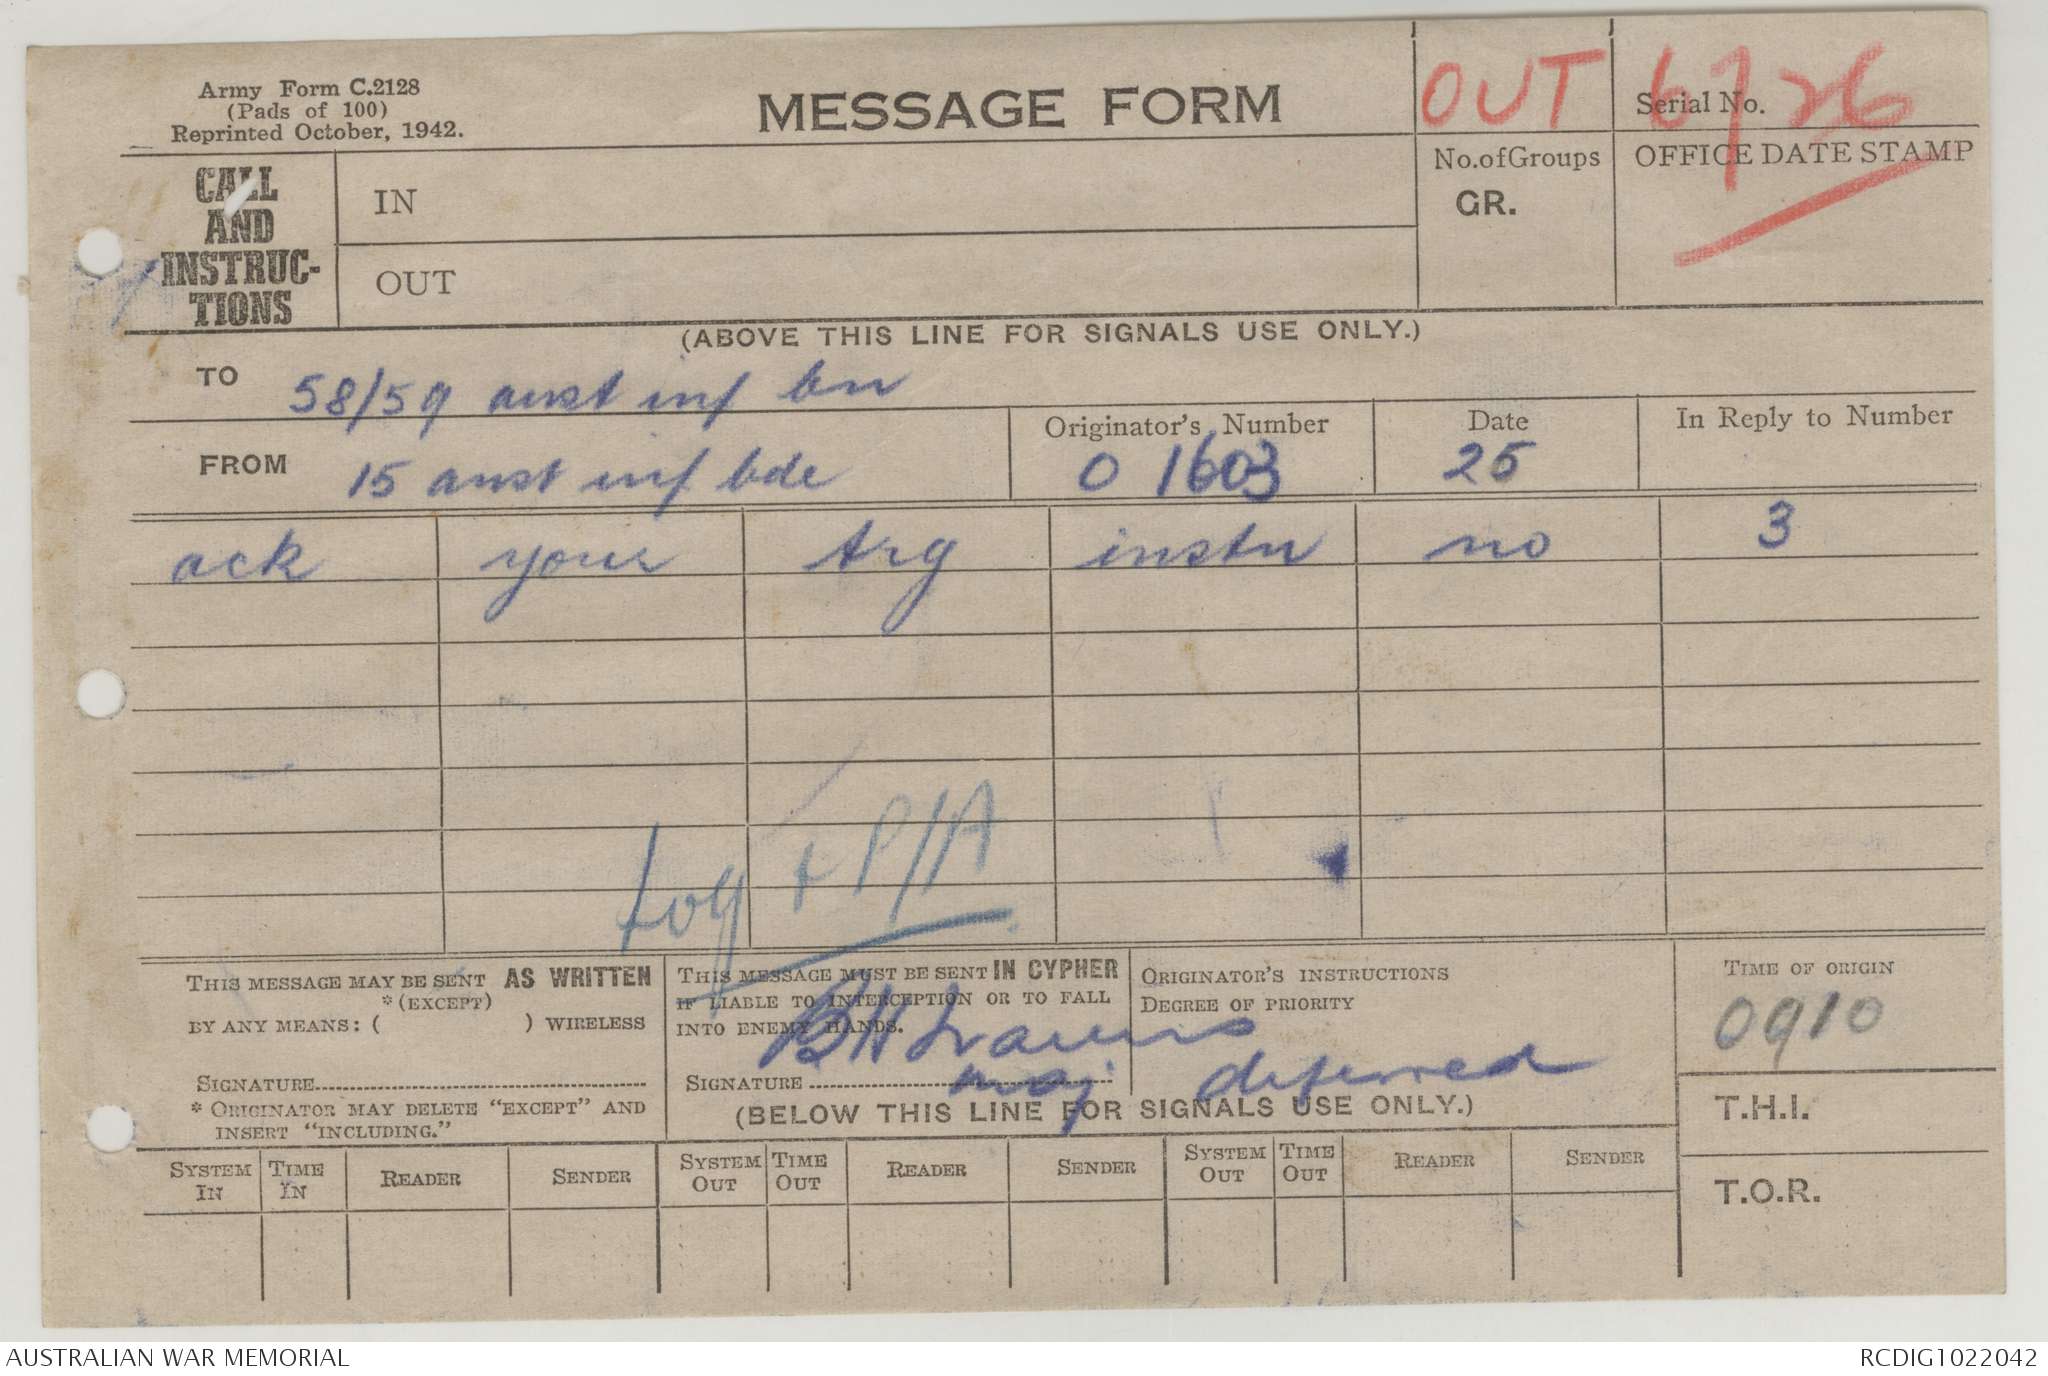 Army Form C.2128
(Pads of 100)
Reprinted October, 1942.
MESSAGE FORM
OUT
Serial No.
CALL
AND
INSTRUC-
TIONS
IN
OUT
No. of Groups
GR.
OFFICE DATE STAMP
(ABOVE THIS LINE FOR SIGNALS USE ONLY.)
TO 58/59 aust inf bn
FROM 15 aust inf bde
Originator's Number
O 1603
Date
25
In Reply to Number
ack your trg instn no 3
Log + P/A
THIS MESSAGE MAY BE SENT AS WRITTEN
*(EXCEPT)
BY ANY MEANS: ( ) WIRELESS
SIGNATURE
* ORIGINATOR MAY DELETE "EXCEPT" AND
INSERT "INCLUDING."
THIS MESSAGE MUST BE SENT IN CYPHER
IF LIABLE TO INTERCEPTION OR TO FALL
INTO ENEMY HANDS.
BH Travers
SIGNATURE maj
ORIGINATOR'S INSTRUCTIONS
DEGREE OF PRIORITY
deferred
TIME OF ORIGIN
0910
T.H.I.
T.O.R.
(BELOW THIS LINE FOR SIGNALS USE ONLY.)
SYSTEM IN TIME IN READER SENDER SYSTEM OUT TIME OUT READER SENDER SYSTEM OUT TIME OUT READER SENDER
AUSTRALIAN WAR MEMORIAL
RCDIG1022042